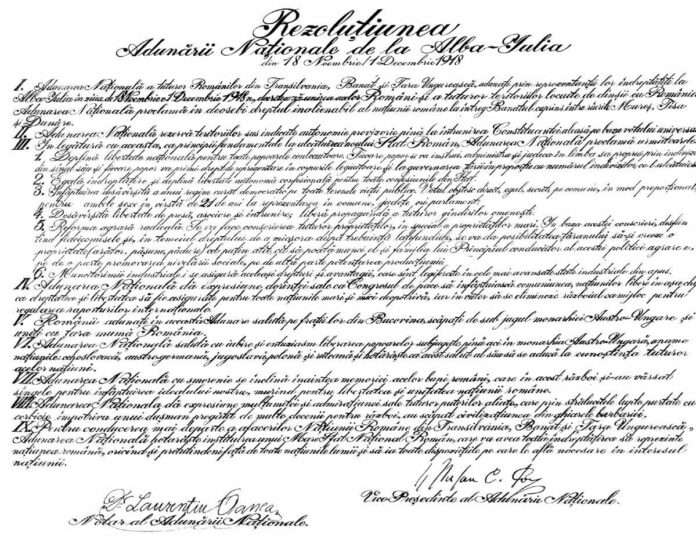 Rezoluțiunea
Adunării Naționale de la Alba-Iulia
din 18 Noembrie/1 Decembrie 1918
I. Adunarea Națională a tuturor Românilor din Transilvania, Banat și Țara Ungurească, adunați prin reprezentanții lor îndreptățiți la
Alba-Iulia în ziua de 18 Noembrie/1 Decembrie 1918, decretează unirea acelor Români și a tuturor teritoriilor locuite de dînșii cu România.
Adunarea Națională proclamă îndeosebi dreptul inalienabil al națiunii române la întreg Banatul cuprins între rîurile Mureș, Tisa
și Dunăre.
II. Adunarea Națională rezervă teritoriilor sus indicate autonomie provizorie pînă la întrunirea Constituantei aleasă pe baza votului universal.
III. În legătură cu aceasta, ca principii fundamentale la alcătuirea noului Stat Român, Adunarea Națională proclamă următoarele:
1. Deplină libertate națională pentru toate popoarele conlocuitoare. Fiecare popor se va instrui, administra și judeca în limba sa proprie prin indivizi
din sînul său și fiecare popor va primi drept de reprezentare în corpurile legiuitoare și la guvernarea țării în proporție cu numărul indivizilor ce-l alcătuiesc.
2. Egală îndreptățire și deplină libertate autonomă confesională pentru toate confesiunile din Stat.
3. Înfăptuirea desăvîrșită a unui regim curat democratic pe toate terenele vieții publice. Votul obștesc, direct, egal, secret, pe comune, în mod proporțional,
pentru ambele sexe în vîrstă de 21 de ani la reprezentarea în comune, județe ori parlament.
4. Desăvîrșită libertate de presă, asociere și întrunire; liberă propagandă a tuturor gîndurilor omenești.
5. Reforma agrară radicală. Se va face conscrierea tuturor proprietăților, în special a proprietăților mari. În baza acestei conscrieri, desființînd
fideicomisele și, în temeiul dreptului de a micșora după trebuință latifundiile, se va da posibilitatea țăranului să-și creeze o
proprietate (arător, pășune, pădure) cel puțin atît cît să poată munci el și familia lui. Principiul conducător al acestei politici agrare e,
pe de o parte promovarea nivelării sociale, pe de altă parte potențarea producțiunii.
6. Muncitorimii industriale i se asigură aceleași drepturi și avantagii, care sînt legiferate în cele mai avansate state industriale din apus.
IV. Adunarea Națională dă expresiune dorinței sale ca Congresul de pace să înfăptuiască comuniunea națiunilor libere în așa chip,
ca dreptatea și libertatea să fie asigurate pentru toate națiunile mari și mici deopotrivă, iar în viitor să se elimineze războiul ca mijloc pentru
regularea raporturilor internaționale.
V. Românii adunați în această Adunare salută pe frații lor din Bucovina, scăpați de sub jugul monarhiei Austro-Ungare și
uniți cu țara mumă România.
VI. Adunarea Națională salută cu iubire și entuziasm liberarea popoarelor subjugate pînă aci în monarhia Austro-Ungară, anume
națiunile: cehoslovacă, austro-germană, jugoslavă, polonă și ruteană și hotărăște ca acest salut al său să se aducă la cunoștința tuturor
acelor națiuni.
VII. Adunarea Națională cu smerenie se închină înaintea memoriei acelor bravi români, care în acest război și-au vărsat
sîngele pentru înfăptuirea idealului nostru, murind pentru libertatea și unitatea națiunii române.
VIII. Adunarea Națională dă expresiune mulțumitei și admirațiunei sale tuturor puterilor aliate, care prin strălucitele lupte purtate cu
cerbicie împotriva unui dușman pregătit de multe decenii pentru război, au scăpat civilizațiunea din ghiarele barbariei.
IX. Pentru conducerea mai departe a afacerilor Națiunii Române din Transilvania, Banat și Țara Ungurească,
Adunarea Națională hotărăște instituirea unui Mare Sfat Național Român, care va avea toată îndreptățirea să reprezinte
națiunea română, oricînd și pretutindeni față de toate națiunile lumii și să ia toate dispozițiile pe care le află necesare în interesul
națiunii.
Dr. Laurențiu Oanea
Notar al Adunării Naționale.
Ștefan C. Pop
Vice Președinte al Adunării Naționale.